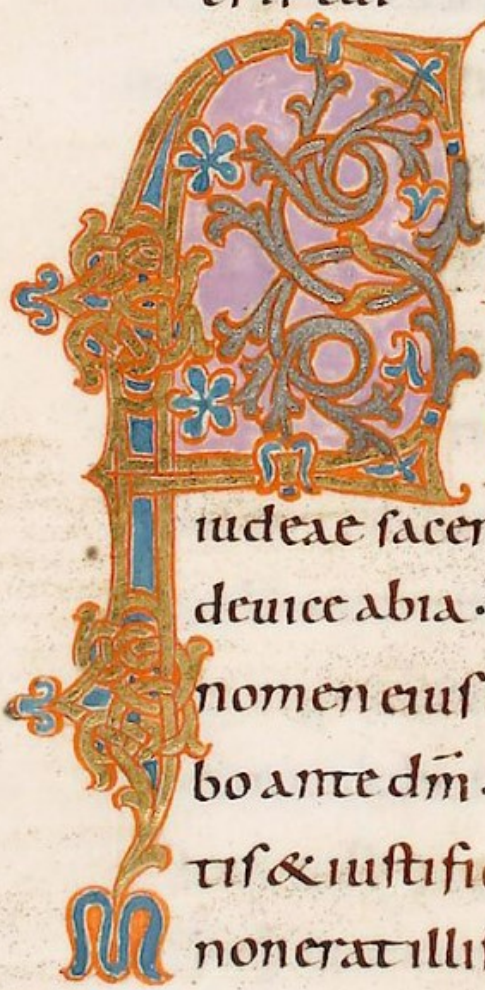 F
iudeae sacer
de uice abia ·
nomen eius
bo ante dm̄ .
tis & iustific
non erat illis